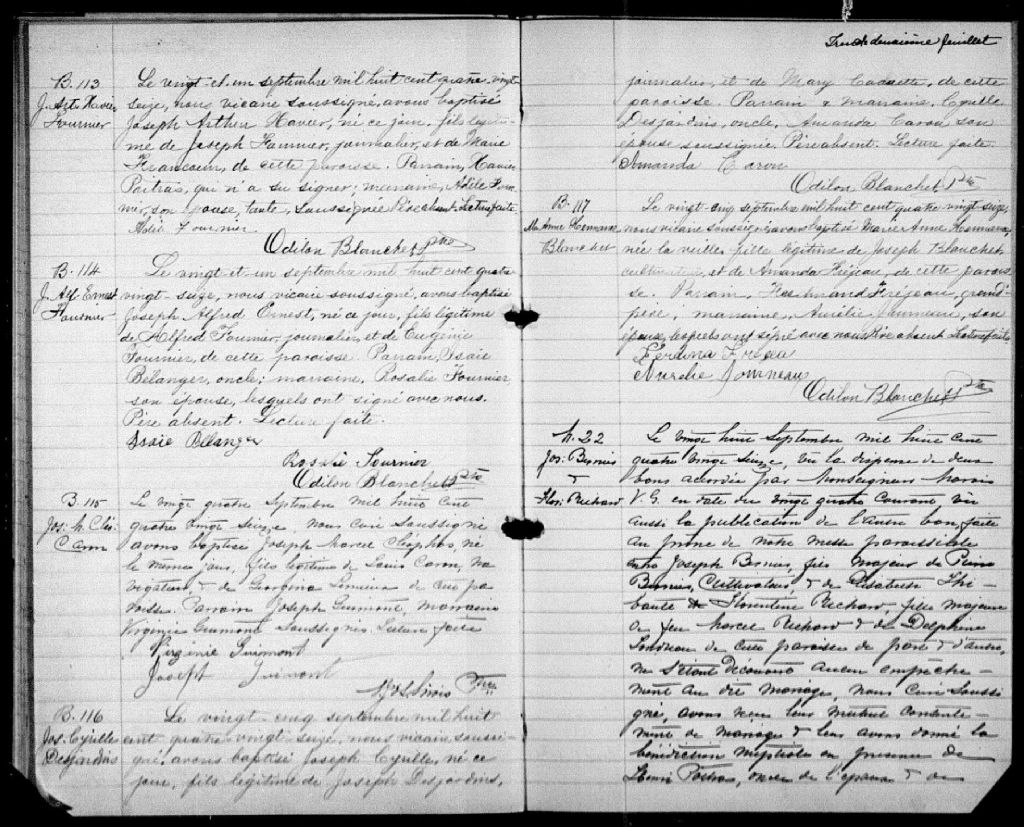 B. 113
J. Art. Xavier
Fournier
Le vingt-et-un septembre mil huit cent quatre vingt-
seize, nous vicaire soussigné, avons baptisé
Joseph Arthur Xavier, né ce jour, fils légiti-
me de Joseph Fournier, journalier, et de Marie
Francoeur, de cette paroisse. Parrain, Xavier
Poitras, qui n'a su signer; marraine, Adèle Four-
nier, son épouse, tante, soussignée. Père absent. Lecture faite
Adèle Fournier
Odilon Blanchet Ptre
B. 114
J. Alf. Ernest
Fournier
Le vingt-et-un septembre mil huit cent quatre
vingt-seize, nous vicaire soussigné, avons baptisé
Joseph Alfred Ernest, né ce jour, fils légitime
de Alfred Fournier, journalier, et de Eugénie
Fournier, de cette paroisse. Parrain, Isaïe
Bélanger, oncle; marraine, Rosalie Fournier
son épouse, lesquels ont signé avec nous.
Père absent. Lecture faite.
Isaie Bélanger
Rosalie Fournier
Odilon Blanchet Ptre
B. 115
Jos. M. Cléo.
Caron
Le vingt quatre Septembre mil huit cent
quatre vingt seize nous Curé Soussigné
avons baptisé Joseph Marcel Cléophas, né
le même jour, fils légitime de Louis Caron, Na-
vigateur, & de Georgina de cette pa-
roisse. Parrain Joseph Guimont, Marraine
Virginie Guimont Soussignés. Lecture faite
Virginie Guimont
Joseph Guimont
Ptre
B. 116
Jos. Cyrille
Desjardins
Le vingt-cinq septembre mil huit
cent quatre vingt-seize, nous vicaire soussi-
gné, avons baptisé Joseph Cyrille, né ce
jour, fils légitime de Joseph Desjardins,
Trente deuxième feuillet
journalier, et de Mary Caouette, de cette
paroisse. Parrain & marraine, Cyrille
Desjardins, oncle, Amanda Caron son
épouse soussignée. Père absent. Lecture faite.
Amanda Caron
Odilon Blanchet Ptre
B. 117
Ma. Anne
Blanchet
Le vingt-cinq septembre mil huit cent quatre vingt seize,
nous vicaire soussigné avons baptisé Marie Anne
née la veille, fille légitime de Joseph Blanchet,
cultivateur, et de Amanda Fréjeau, de cette parois-
se. Parrain, Ferdinand Fréjeau, grand'-
père, marraine, Aurélie son
épouse, lesquels ont signé avec nous. Père absent. Lecture faite
Aurelie
Odilon Blanchet Ptre
M. 22
Jos. Bernier
&
Flor. Richard
Le vingt huit Septembre mil huit cent
quatre vingt Seize, vu la dispense de deux
bans accordée par Monseigneur Marois
V. G. en date du vingt quatre courant, vu
aussi la publication de l'autre ban, faite
au prône de notre messe paroissiale
entre Joseph Bernier, fils majeur de
Bernier, Cultivateur, & de Elisabeth Thi-
bault & Florentine Richard, fille majeure
de feu Marcel Richard & de Delphine
de cette paroisse de part & d'autre,
ne s'étant découvert aucun empêche-
ment au dit mariage, nous Curé Soussi-
gné, avons reçu leur mutuel consente-
ment de mariage & leur avons donné la
bénédiction nuptiale en présence de
Henri Poitras, oncle de l'époux & de